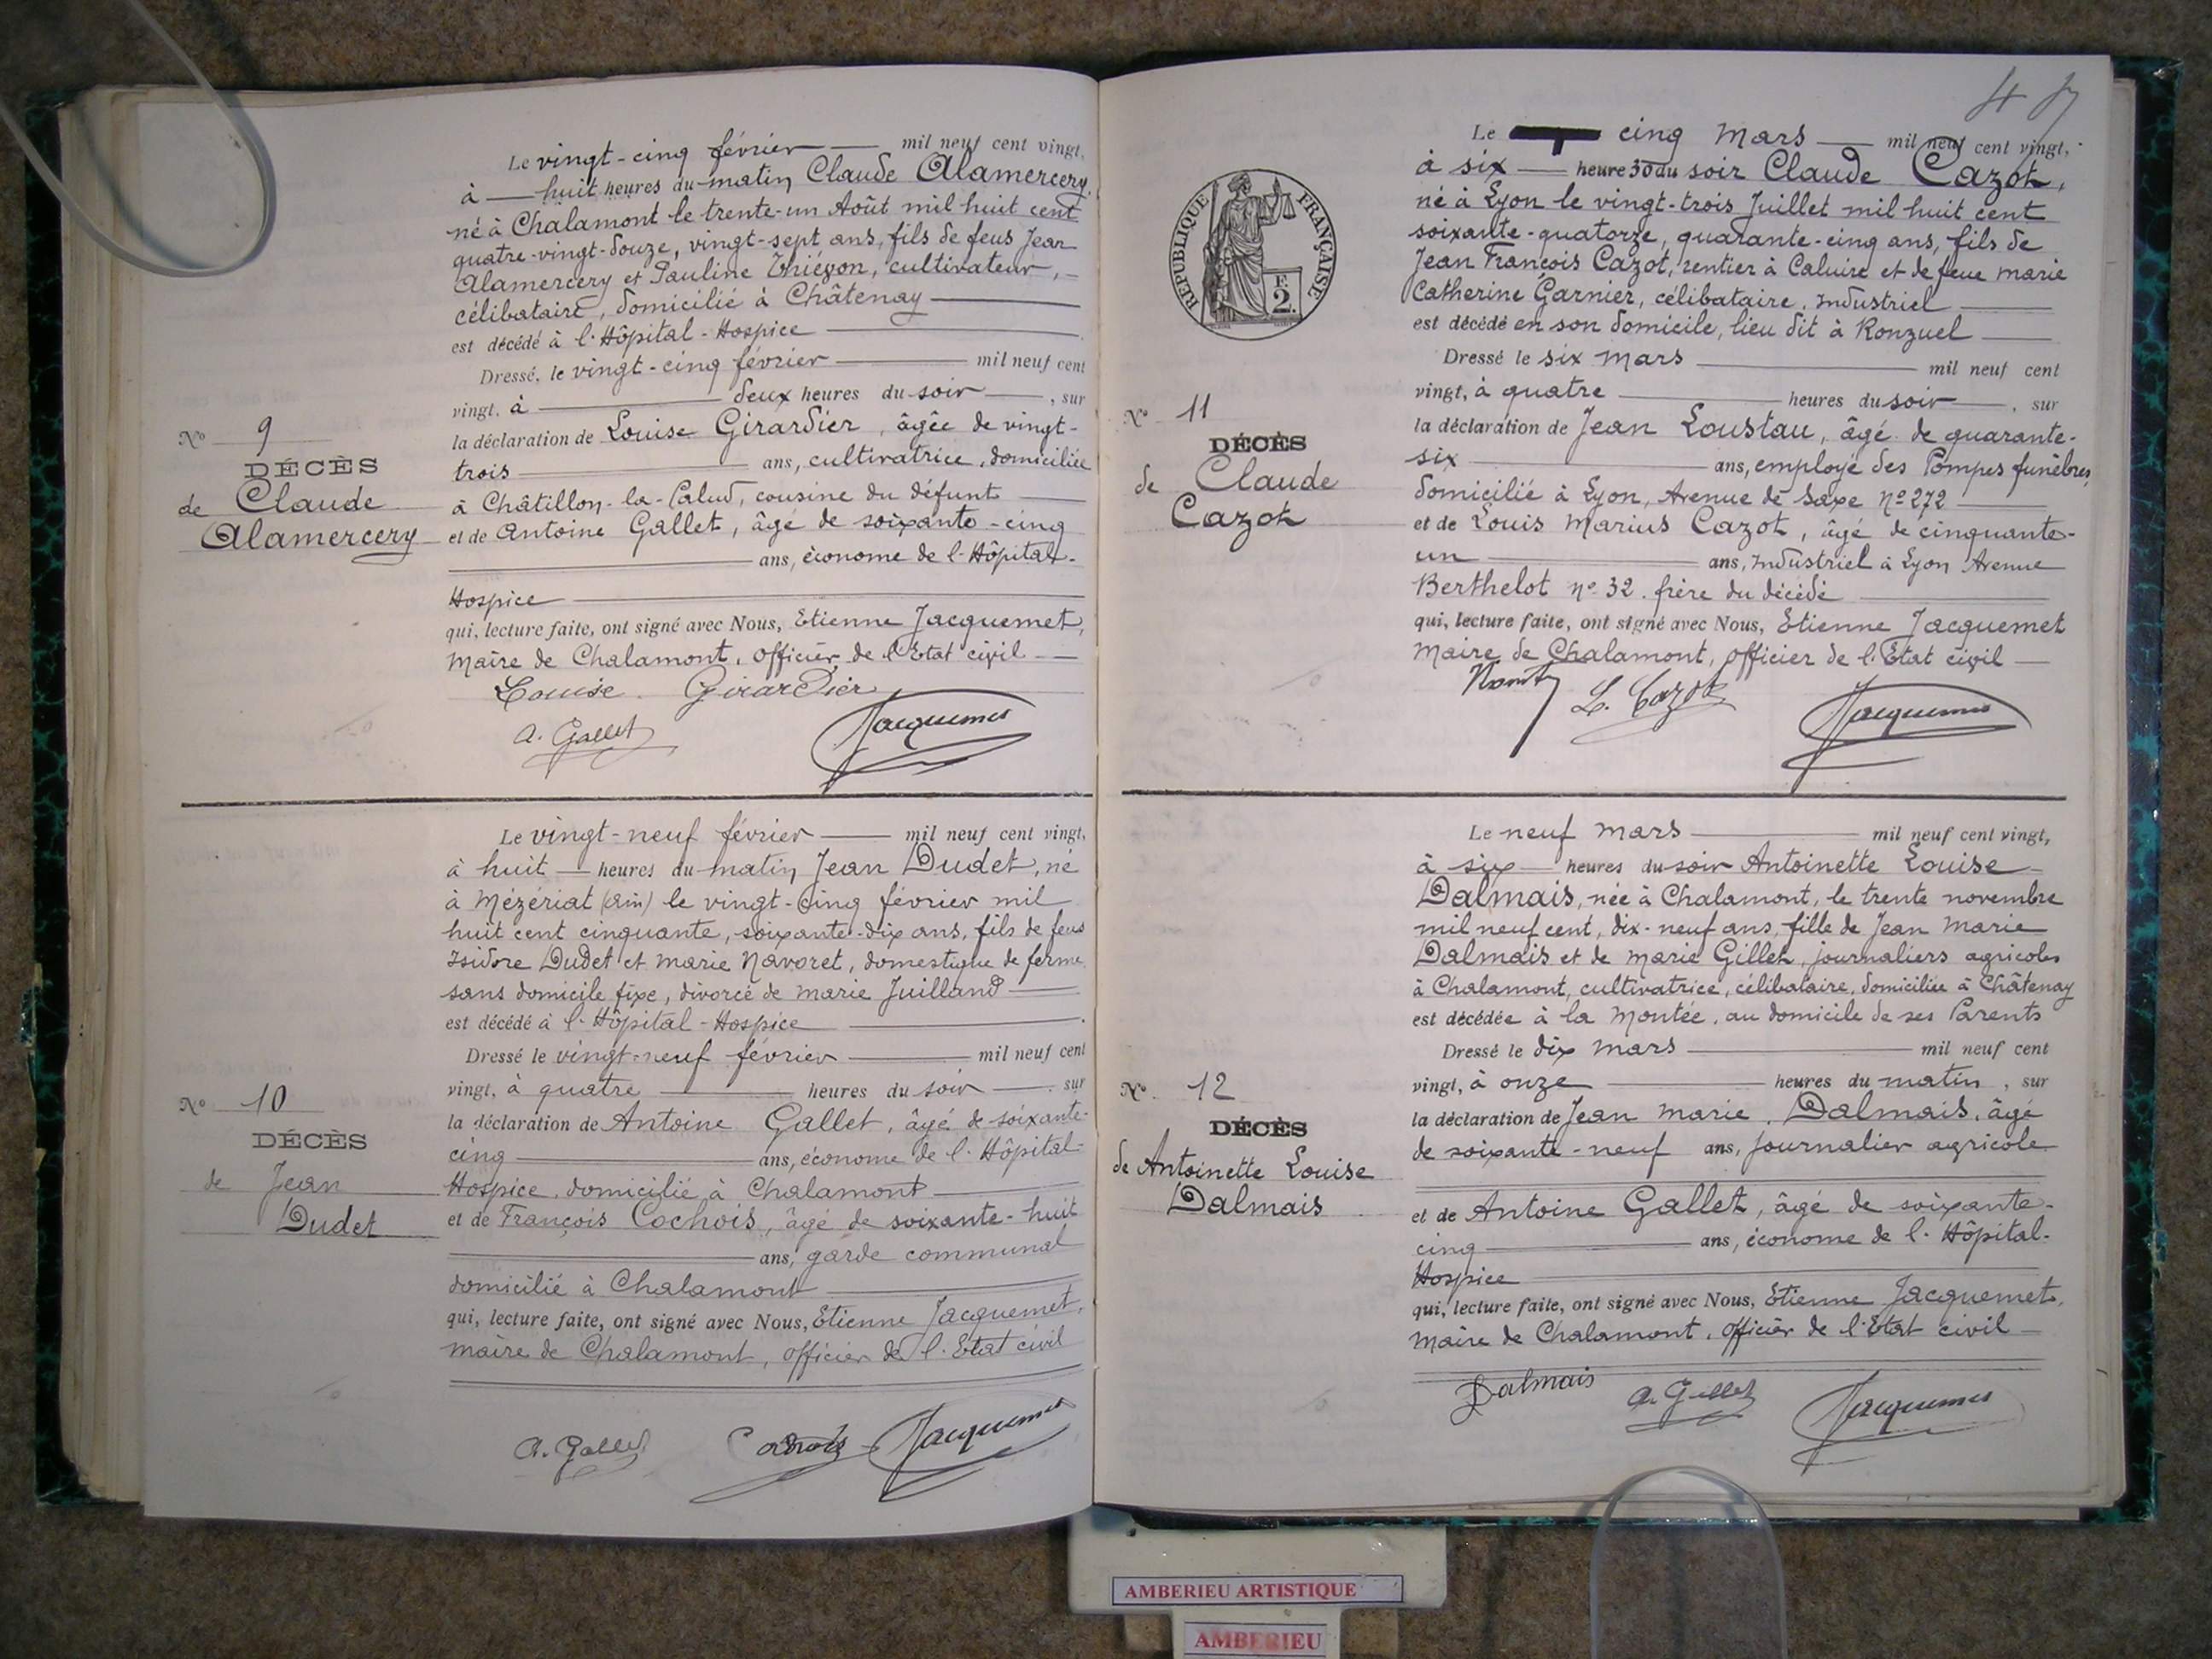 Le vingt-cinq février mil neuf cent vingt,
à huit heures du matin Claude Alamercery,
né à Chalamont le trente-un Août mil huit cent
quatre-vingt-douze, vingt-sept ans, fils de feus Jean
Alamercery et Pauline Thiévon, cultivateur,
célibataire, domicilié à Châtenay
est décédé à l'Hôpital-Hospice
Dressé, le vingt-cinq février mil neuf cent
vingt, à deux heures du soir, sur
la déclaration de Louise Girardier, âgée de vingt-
trois ans, cultivatrice, domiciliée
à Châtillon-la-Palud, cousine du défunt
et de Antoine Gallet, âgé de soixante-cinq
ans, économe de l'Hôpital-
Hospice
qui, lecture faite, ont signé avec Nous, Etienne Jacquemet,
Maire de Chalamont, officier de l'Etat civil
Louise Girardier
A. Gallet Jacquemet
No 9
DÉCÈS
de Claude
Alamercery
Le vingt-neuf février mil neuf cent vingt,
à huit heures du matin Jean Dudet, né
à Mézériat (Ain) le vingt-cinq février mil
huit cent cinquante, soixante-dix ans, fils de feus
Isidore Dudet et Marie Navoret, domestique de ferme
sans domicile fixe, divorcé de Marie Juilland
est décédé à l'Hôpital-Hospice
Dressé le vingt-neuf février mil neuf cent
vingt, à quatre heures du soir, sur
la déclaration de Antoine Gallet, âgé de soixante-
cinq ans, économe de l'Hôpital-
Hospice, domicilié à Chalamont
et de François Cochois, âgé de soixante-huit
ans, garde communal
domicilié à Chalamont
qui, lecture faite, ont signé avec Nous, Etienne Jacquemet,
maire de Chalamont, officier de l'Etat civil
A. Gallet Cochois Jacquemet
No 10
DÉCÈS
de Jean
Dudet
Le cinq Mars mil neuf cent vingt,
à six heure 30 du soir Claude Cazot,
né à Lyon le vingt-trois Juillet mil huit cent
soixante-quatorze, quarante-cinq ans, fils de
Jean François Cazot, rentier à Caluire et de feue Marie
Catherine Garnier, célibataire, Industriel
est décédé en son domicile, lieu dit à Ronzuel
Dressé le six Mars mil neuf cent
vingt, à quatre heures du soir, sur
la déclaration de Jean Loustau, âgé de quarante-
six ans, employé des Pompes funèbres,
domicilié à Lyon, Avenue de Saxe No 272
et de Louis Marius Cazot, âgé de cinquante-
un ans, Industriel à Lyon Avenue
Berthelot no 32. frère du décédé
qui, lecture faite, ont signé avec Nous, Etienne Jacquemet
Maire de Chalamont, officier de l'Etat civil
L. Cazot Jacquemet
RÉPUBLIQUE FRANÇAISE
F.
2.
No 11
DÉCÈS
de Claude
Cazot
Le neuf mars mil neuf cent vingt,
à six heures du soir Antoinette Louise
Dalmais, née à Chalamont, le trente novembre
mil neuf cent, dix-neuf ans, fille de Jean Marie
Dalmais et de Marie Gillet, journaliers agricoles
à Chalamont, cultivatrice, célibataire, domiciliée à Châtenay
est décédée à la Montée, au domicile de ses Parents
Dressé le dix mars mil neuf cent
vingt, à onze heures du matin, sur
la déclaration de Jean Marie Dalmais, âgé
de soixante-neuf ans, journalier agricole
et de Antoine Gallet, âgé de soixante-
cinq ans, économe de l'Hôpital-
Hospice
qui, lecture faite, ont signé avec Nous, Etienne Jacquemet,
Maire de Chalamont, officier de l'Etat civil
Dalmais A. Gallet Jacquemet
No 12
DÉCÈS
de Antoinette Louise
Dalmais
AMBERIEU ARTISTIQUE
AMBERIEU